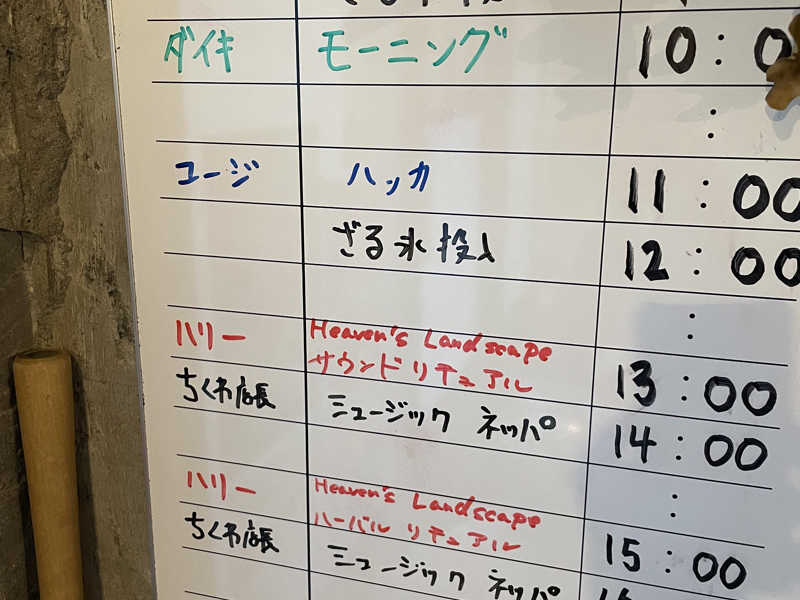 ダイキ モーニング 10:0
:
ユージ ハッカ 11:00
ざる氷投入 12:00
:
ハリー Heaven's Landscape
サウンドリチュアル 13:00
ちくわ店長 ミュージック ネッパ 14:00
:
ハリー Heaven's Landscape
ハーバル リチュアル 15:00
ちくわ店長 ミュージック ネッパ